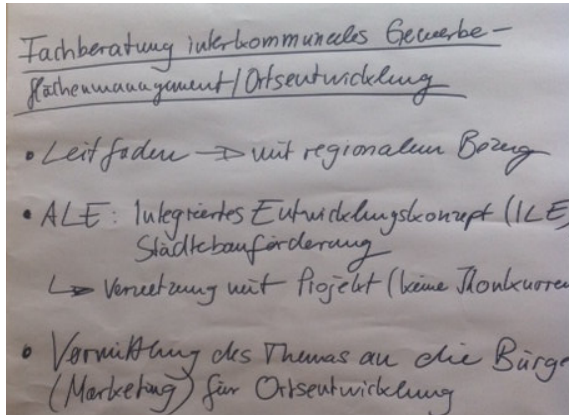 Fachberatung interkommunales Gewerbe-
flächenmanagement/Ortsentwicklung
• Leitfaden → mit regionalem Bezug
• ALE: Integriertes Entwicklungskonzept (ILE)
Städtebauförderung
↳ Vernetzung mit Projekt (keine Konkurren
• Vermittlung des Themas an die Bürge
(Marketing) für Ortsentwicklung